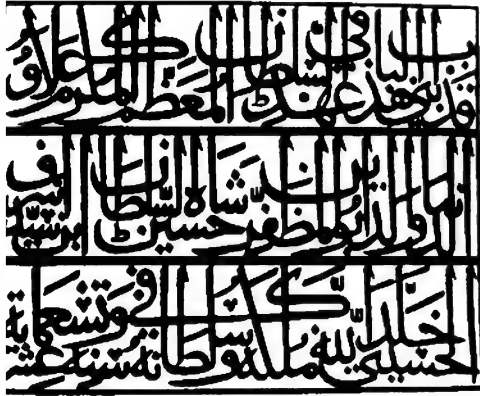 قد بني هذا الباب في عهد السلطان المعظم المكرم علاؤ
الدنيا والدين ابو المظفر حسين شاه السلطان ابن سيد اشرف
الحسيني خلد الله ملكه وسلطانه في سنة عشر وتسعماية